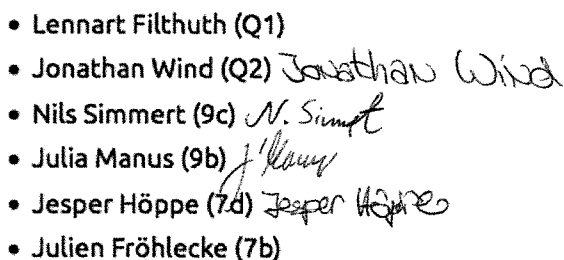 • Lennart Filthuth (Q1)
• Jonathan Wind (Q2) Jonathan Wind
• Nils Simmert (9c) N. Simmert
• Julia Manus (9b)
• Jesper Höppe (7d) Jesper Höppe
• Julien Fröhlecke (7b)